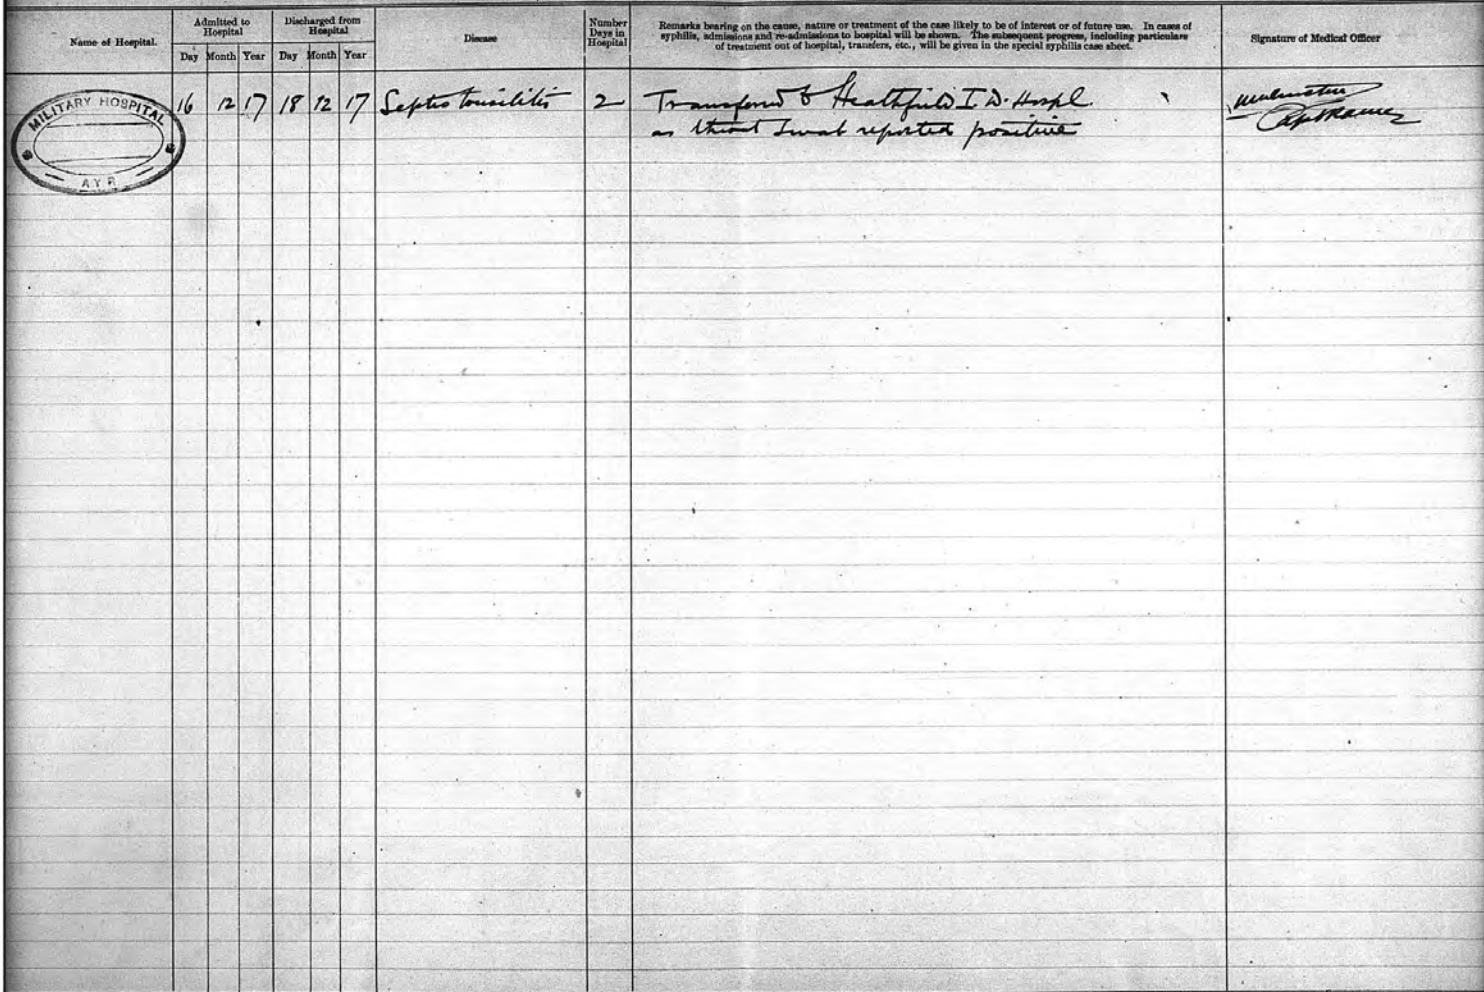 Name of Hospital.
Admitted to Hospital
Day Month Year
Discharged from Hospital
Day Month Year
Disease
Number Days in Hospital
Remarks bearing on the cause, nature or treatment of the case likely to be of interest or of future use. In cases of
syphilis, admissions and re-admissions to hospital will be shown. The subsequent progress, including particulars
of treatment out of hospital, transfers, etc., will be given in the special syphilis case sheet.
Signature of Medical Officer
MILITARY HOSPITAL
AYR
16 12 17 18 12 17 Septic tonsilitis 2 Transferred to Heathfield I D. Hospl.
as throat swab reported positive